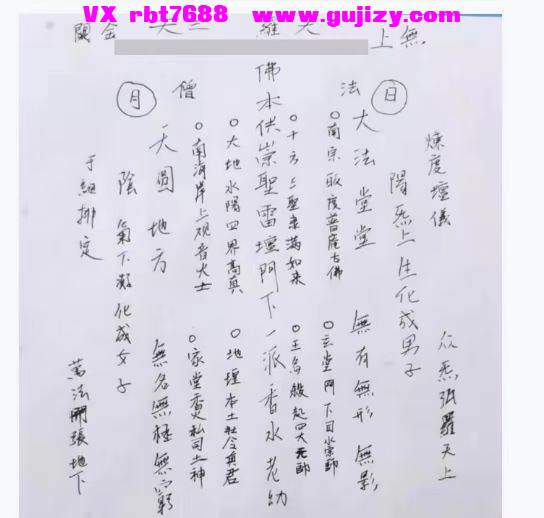 VX rbt7688 www.gujizy.com
無上
大羅
三天
金闕
煉度壇儀
众炁張羅天上
日
陽炁上生化成男子
法大法堂堂
無有無形無影
○南泉教度普庵古佛
○玄堂門下目水宗師
○十方三聖来满如来
○王馬殷赵四大元帥
佛本供崇聖雷壇門下一派香水老幼
○大地水陽四界高真
○地理本土社令真君
○南海岸上观音大士
○家堂香火私司土神
僧
天圓地方
無名無極無窮
月
陰氣下凝化成女子
子細排定
萬法開張地下